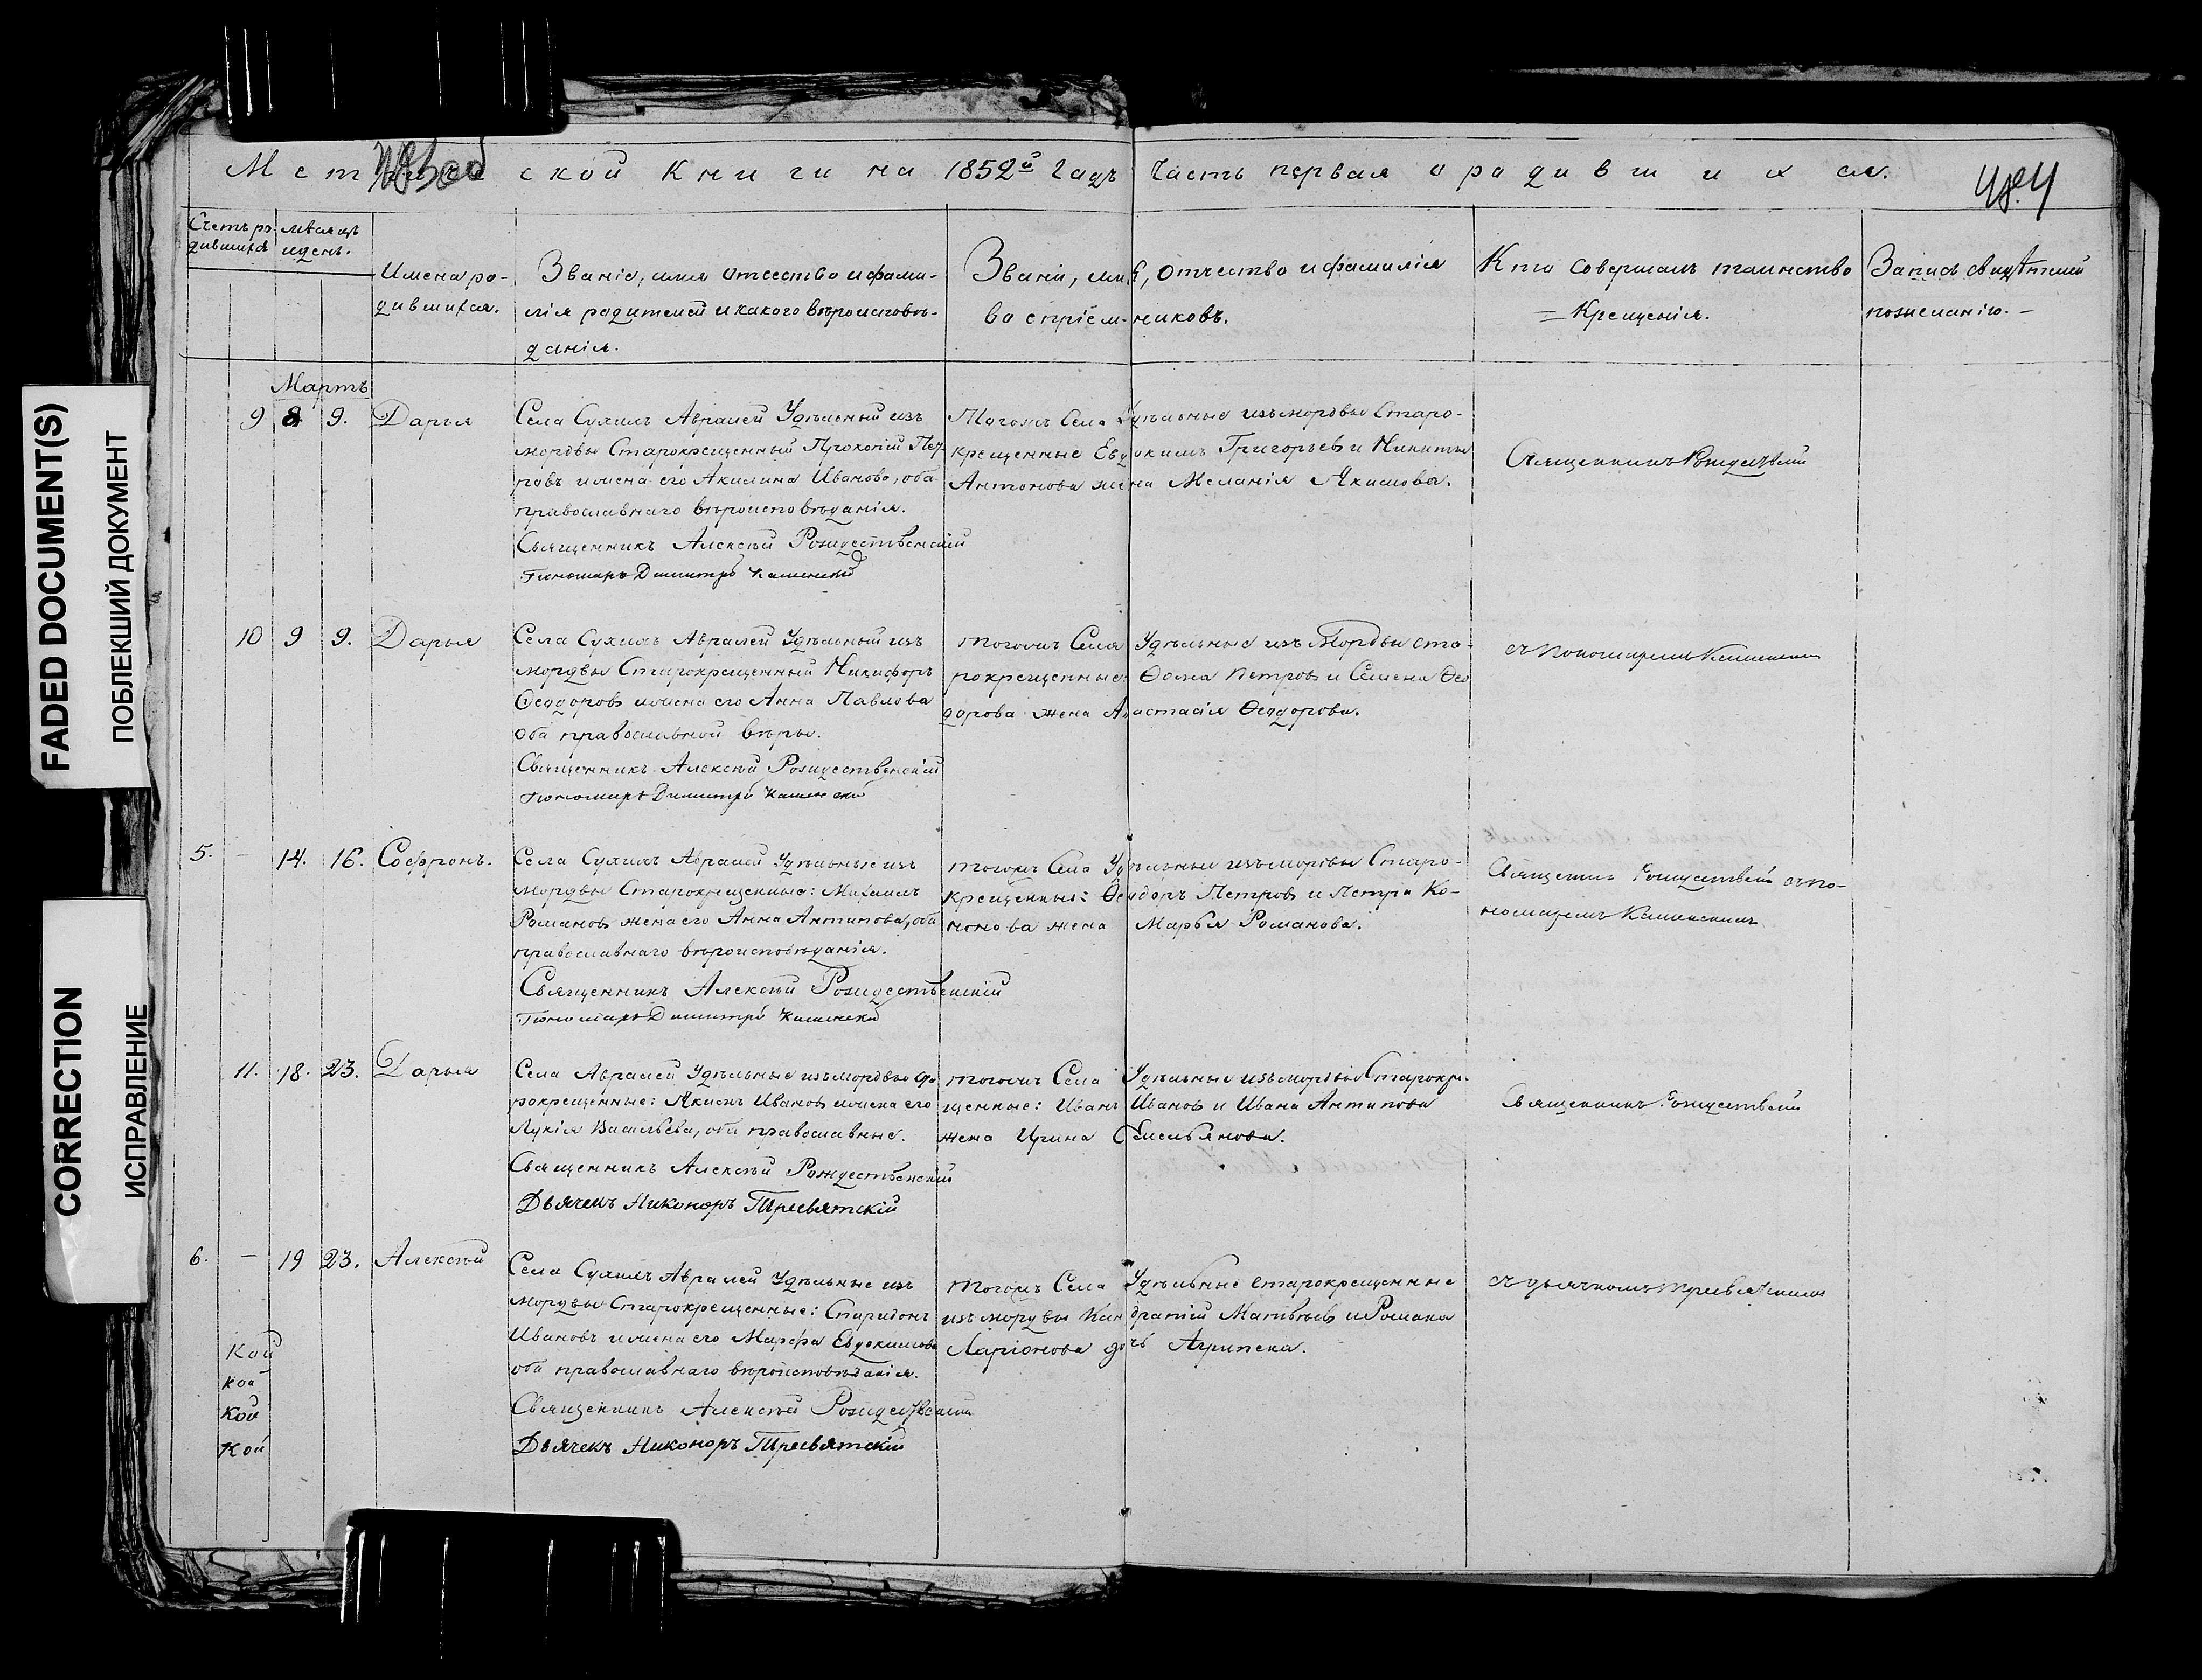 FADED DOCUMENT(S)
ПОБЛЕКШИЙ ДОКУМЕНТ
CORRECTION
ИСПРАВЛЕНИЕ
ской Книги на 1852й Годъ Часть первая о родившихся.
Счетъ ро-
дившихся
Мѣсяцъ
и день.
Имена ро-
дившихся.
Званіе, имя отчество и фами-
лія родителей и какого вѣроисповѣ-
данія.
Званіе, имя, отчество и фамилія
воспріемниковъ.
Кто совершалъ таинство
Крещенія.
Запись свидѣтелей
по желанію.
Мартъ
9 8 9. Дарья
Села Сухихъ Авралей Удѣльный изъ
мордвы Старокрещенный Прокопій Пет-
ровъ и жена его Акилина Иванова, оба
православнаго вѣроисповѣданія.
Священникъ Алексѣй Рождественскій
Пономарь Димитрій
Тогожъ Села Удѣльные изъ мордвы Старо-
крещенные Евдокимъ Григорьевъ и Никиты
Антонова жена Меланія Якимова.
Священникъ
10 9 9. Дарья
Села Сухихъ Авралей Удѣльный изъ
мордвы Старокрещенный Никифоръ
Ѳеодоровъ и жена его Анна Павлова
оба православной вѣры.
Священникъ Алексѣй Рождественскій
Пономарь Димитрій
Тогожъ Села Удѣльные изъ Мордвы ста-
рокрещенные: Ѳома Петровъ и Семена Ѳео
дорова жена Анастасія Ѳеодорова.
съ Пономаремъ
5. - 14. 16. Софронъ.
Села Сухихъ Авралей Удѣльные изъ
мордвы Старокрещенные: Михаилъ
Романовъ жена его Анна Антипова, оба
православнаго вѣроисповѣданія.
Священникъ Алексѣй Рождественскій
Пономарь Димитрій
Тогожъ Села Удѣльные изъ мордвы Старо-
крещенные: Ѳеодоръ Петровъ и Петра Ко-
нонова жена Марья Романова.
Священникъ съ по-
номаремъ
11. 18. 23. Дарья
Села Авралей Удѣльные изъ мордвы
рокрещенные: Якимъ Ивановъ и жена его
Лукія Васильева, оба православные.
Священникъ Алексѣй Рождественскій
Дьячекъ Никоноръ Тресвятскій
Тогожъ Села Удѣльные изъ мордвы Старокре-
щенные: Иванъ Ивановъ и Ивана Антипова
жена Ирина Емельянова.
Священникъ
6. - 19 23. Алексѣй
Села Сухихъ Авралей Удѣльные изъ
мордвы Старокрещенные: Спиридонъ
Ивановъ и жена его Марфа Евдокимова
оба православнаго вѣроисповѣданія.
Священникъ Алексѣй Рождественскій
Дьячекъ Никоноръ Тресвятскій
Тогожъ Села Удѣльные старокрещенные
изъ мордвы Кандратій Матвѣевъ и Романа
Ларіонова дочь Агрипена.
съ дьячкомъ Тресвятскимъ
Кой
Кой
Кой
Кой